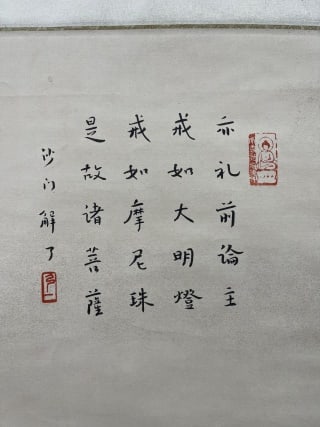 亦礼前論主
戒如大明燈
戒如摩尼珠
是故诸菩薩
沙门解了